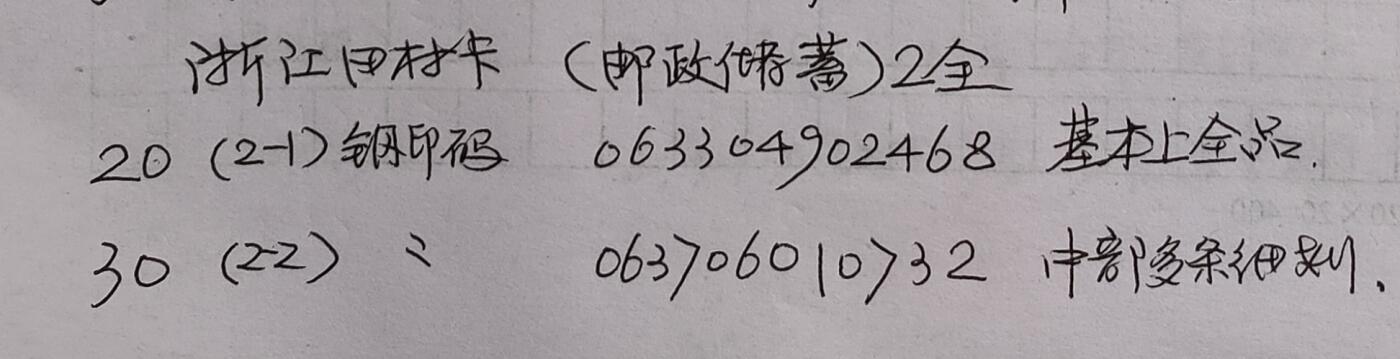 浙江田村卡 (邮政储蓄)2全
20 (2-1)钢印码 063304902468 基本上全品.
30 (2-2) 〃 063706010732 中部多条细划.